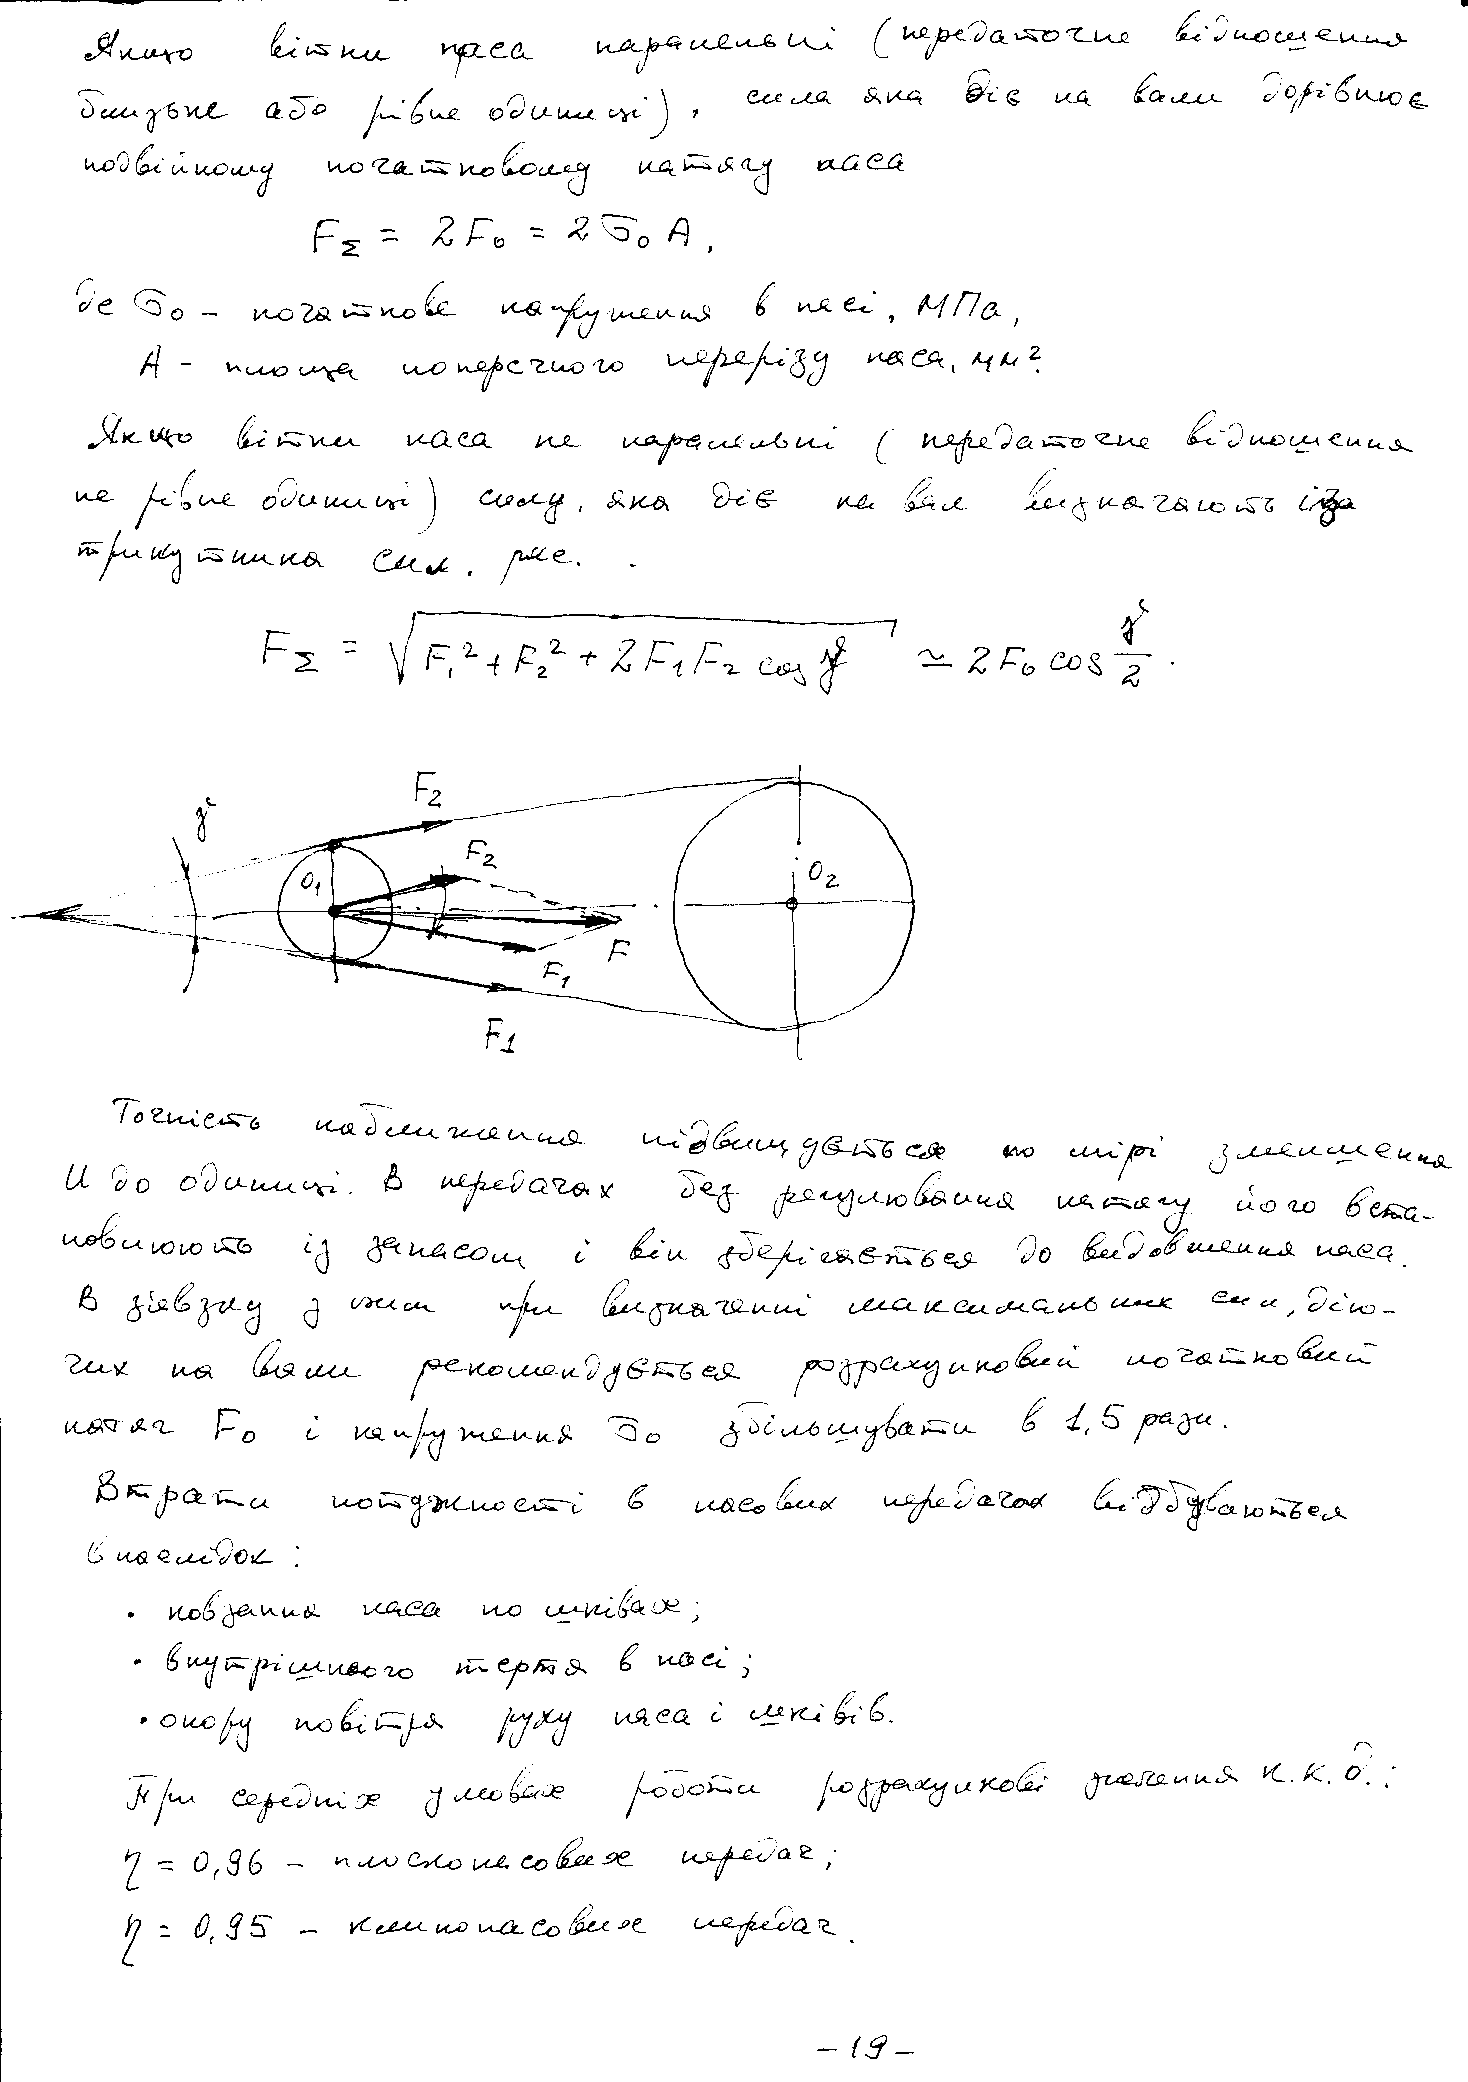 Якщо вітки паса паралельні (передаточне відношення
близьке або рівне одиниці), сила яка діє на вали дорівнює
подвійному початковому натягу паса
F_Σ = 2F₀ = 2σ₀A,
де σ₀ – початкове напруження в пасі, МПа,
А – площа поперечного перерізу паса, мм².
Якщо вітки паса не паралельні (передаточне відношення
не рівне одиниці) силу, яка діє на вал визначають із
трикутника сил, рис.
F_Σ = √(F₁² + F₂² + 2F₁F₂ cos γ) ≃ 2F₀ cos γ/2.
F₂
γ
F₂
O₁
O₂
F
F₁
F₁
Точність наближення підвищується по мірі зменшення
U до одиниці. В передачах без регулювання натягу його вста-
новлюють із запасом і він зберігається до видовження паса.
В звязку з цим при визначенні максимальних сил, дію-
чих на вали рекомендується розрахунковий початковий
натяг F₀ і напруження σ₀ збільшувати в 1,5 рази.
Втрати потужності в пасових передачах відбуваються
внаслідок:
• ковзання паса по шківах;
• внутрішнього тертя в пасі;
• опору повітря руху паса і шківів.
При середніх умовах роботи розрахункові значення к.к.д.:
η = 0,96 – плоскопасових передач;
η = 0,95 – клинопасових передач.
– 19 –